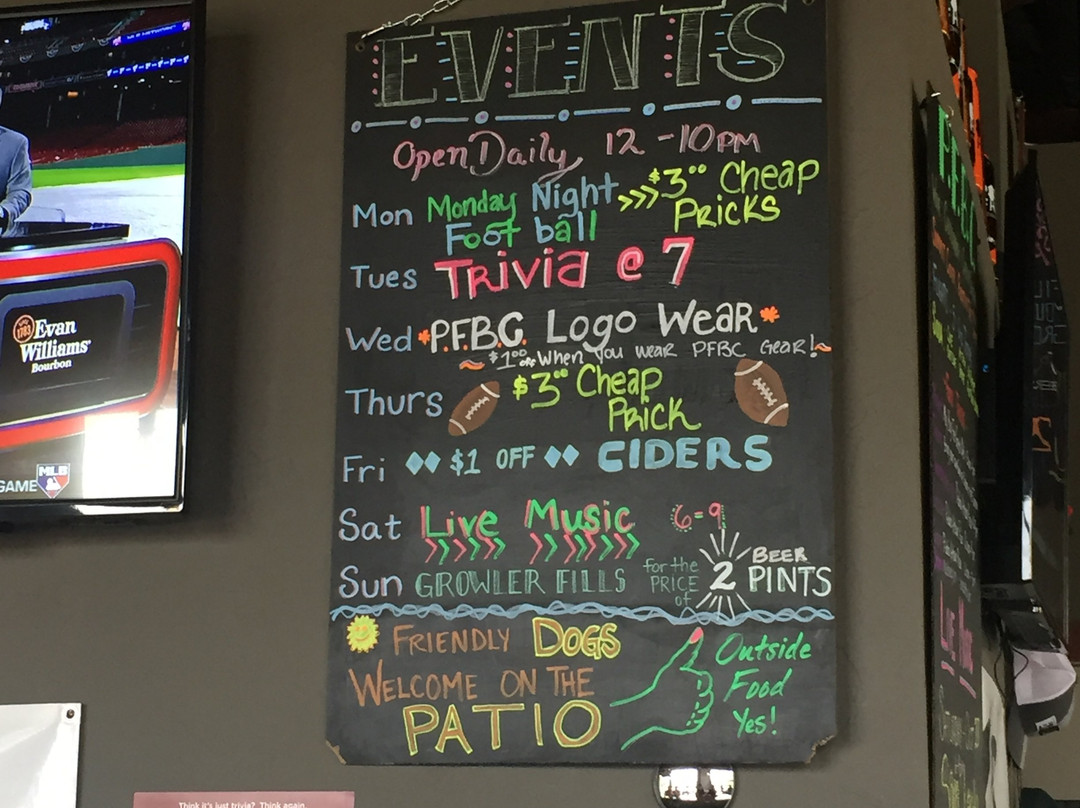 EVENTS
Open Daily 12-10PM
Mon Monday Night Football >>> $3⁰⁰ Cheap Pricks
Tues Trivia @ 7
Wed P.F.B.C. Logo Wear
$1⁰⁰ off When you wear PFBC Gear!
Thurs $3⁰⁰ Cheap Prick
Fri $1 OFF CIDERS
Sat Live Music 6-9
Sun GROWLER FILLS for the PRICE of 2 BEER PINTS
FRIENDLY DOGS
WELCOME ON THE
PATIO
Outside
Food
Yes!
1783
Evan
Williams
Bourbon
GAME MLB
Think it's just trivia? Think again.